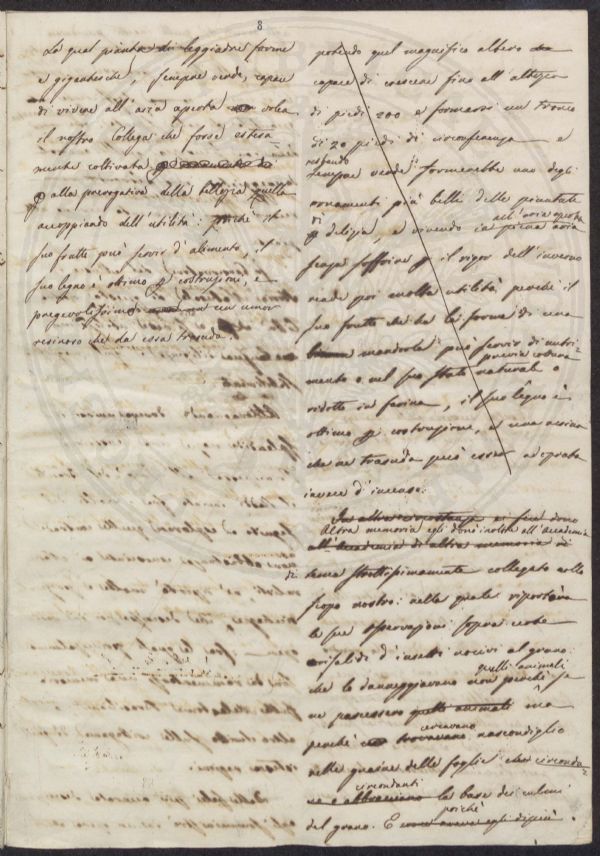 8
La qual pianta di leggiadre forme
e gigantesche, sempre verde, capace
di vivere all'aria aperta volea
il nostro Collega che forse estesa-
mente coltivata
alla prerogativa della bellezza quella
accoppiando dell'utilità: poichè il
suo frutto può servir d'alimento, il
suo legno è ottimo p costruzioni, e
pregevolissimo un umor
resinoso che da essa trasuda.
potendo quel magnifico albero
capace di crescere fino all'altezza
di piedi 200 e formarsi un tronco
di 20 piedi di circonferenza e
essendo
sempre verde formerebbe uno degli
ornamenti più belli delle piantate
di all'aria aperta
p delizia, e vivendo in piena aria
senza soffrire p il rigor dell'inverno
rende poi molta utilità perchè il
suo frutto che ha la forma di una
mandorla può servir di nutri-
previa cottura
mento o nel suo stato naturale o
ridotto in farina, il suo legno è
ottimo p costruzione, e una resina
che ne trasuda può esser adoprata
invece d'incenso.
In altra circostanza ei fece dono
Altra memoria egli donò inoltre all'Accademia
all'Accademia di altra memoria di
tema strettissimamente collegato collo
scopo nostro: nella quale riportava
le sue osservazioni sopra certe
crisalidi d'insetti nocivi al grano:
quelli animali
che lo danneggiavano non perchè se
ne pascessero quelli animali ma
cercavano
perchè trovavano nascondiglio
nelle guaine delle foglie che circonda-
circondanti
no e abbracciano la base dei culmi
poichè
del grano. E come aveva egli